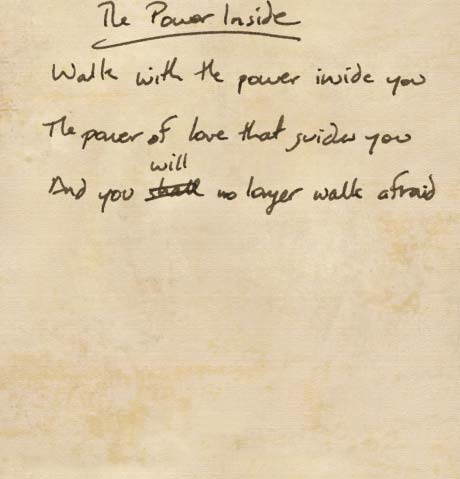 The Power Inside
Walk with the power inside you
The power of love that guides you
will
And you shall no longer walk afraid